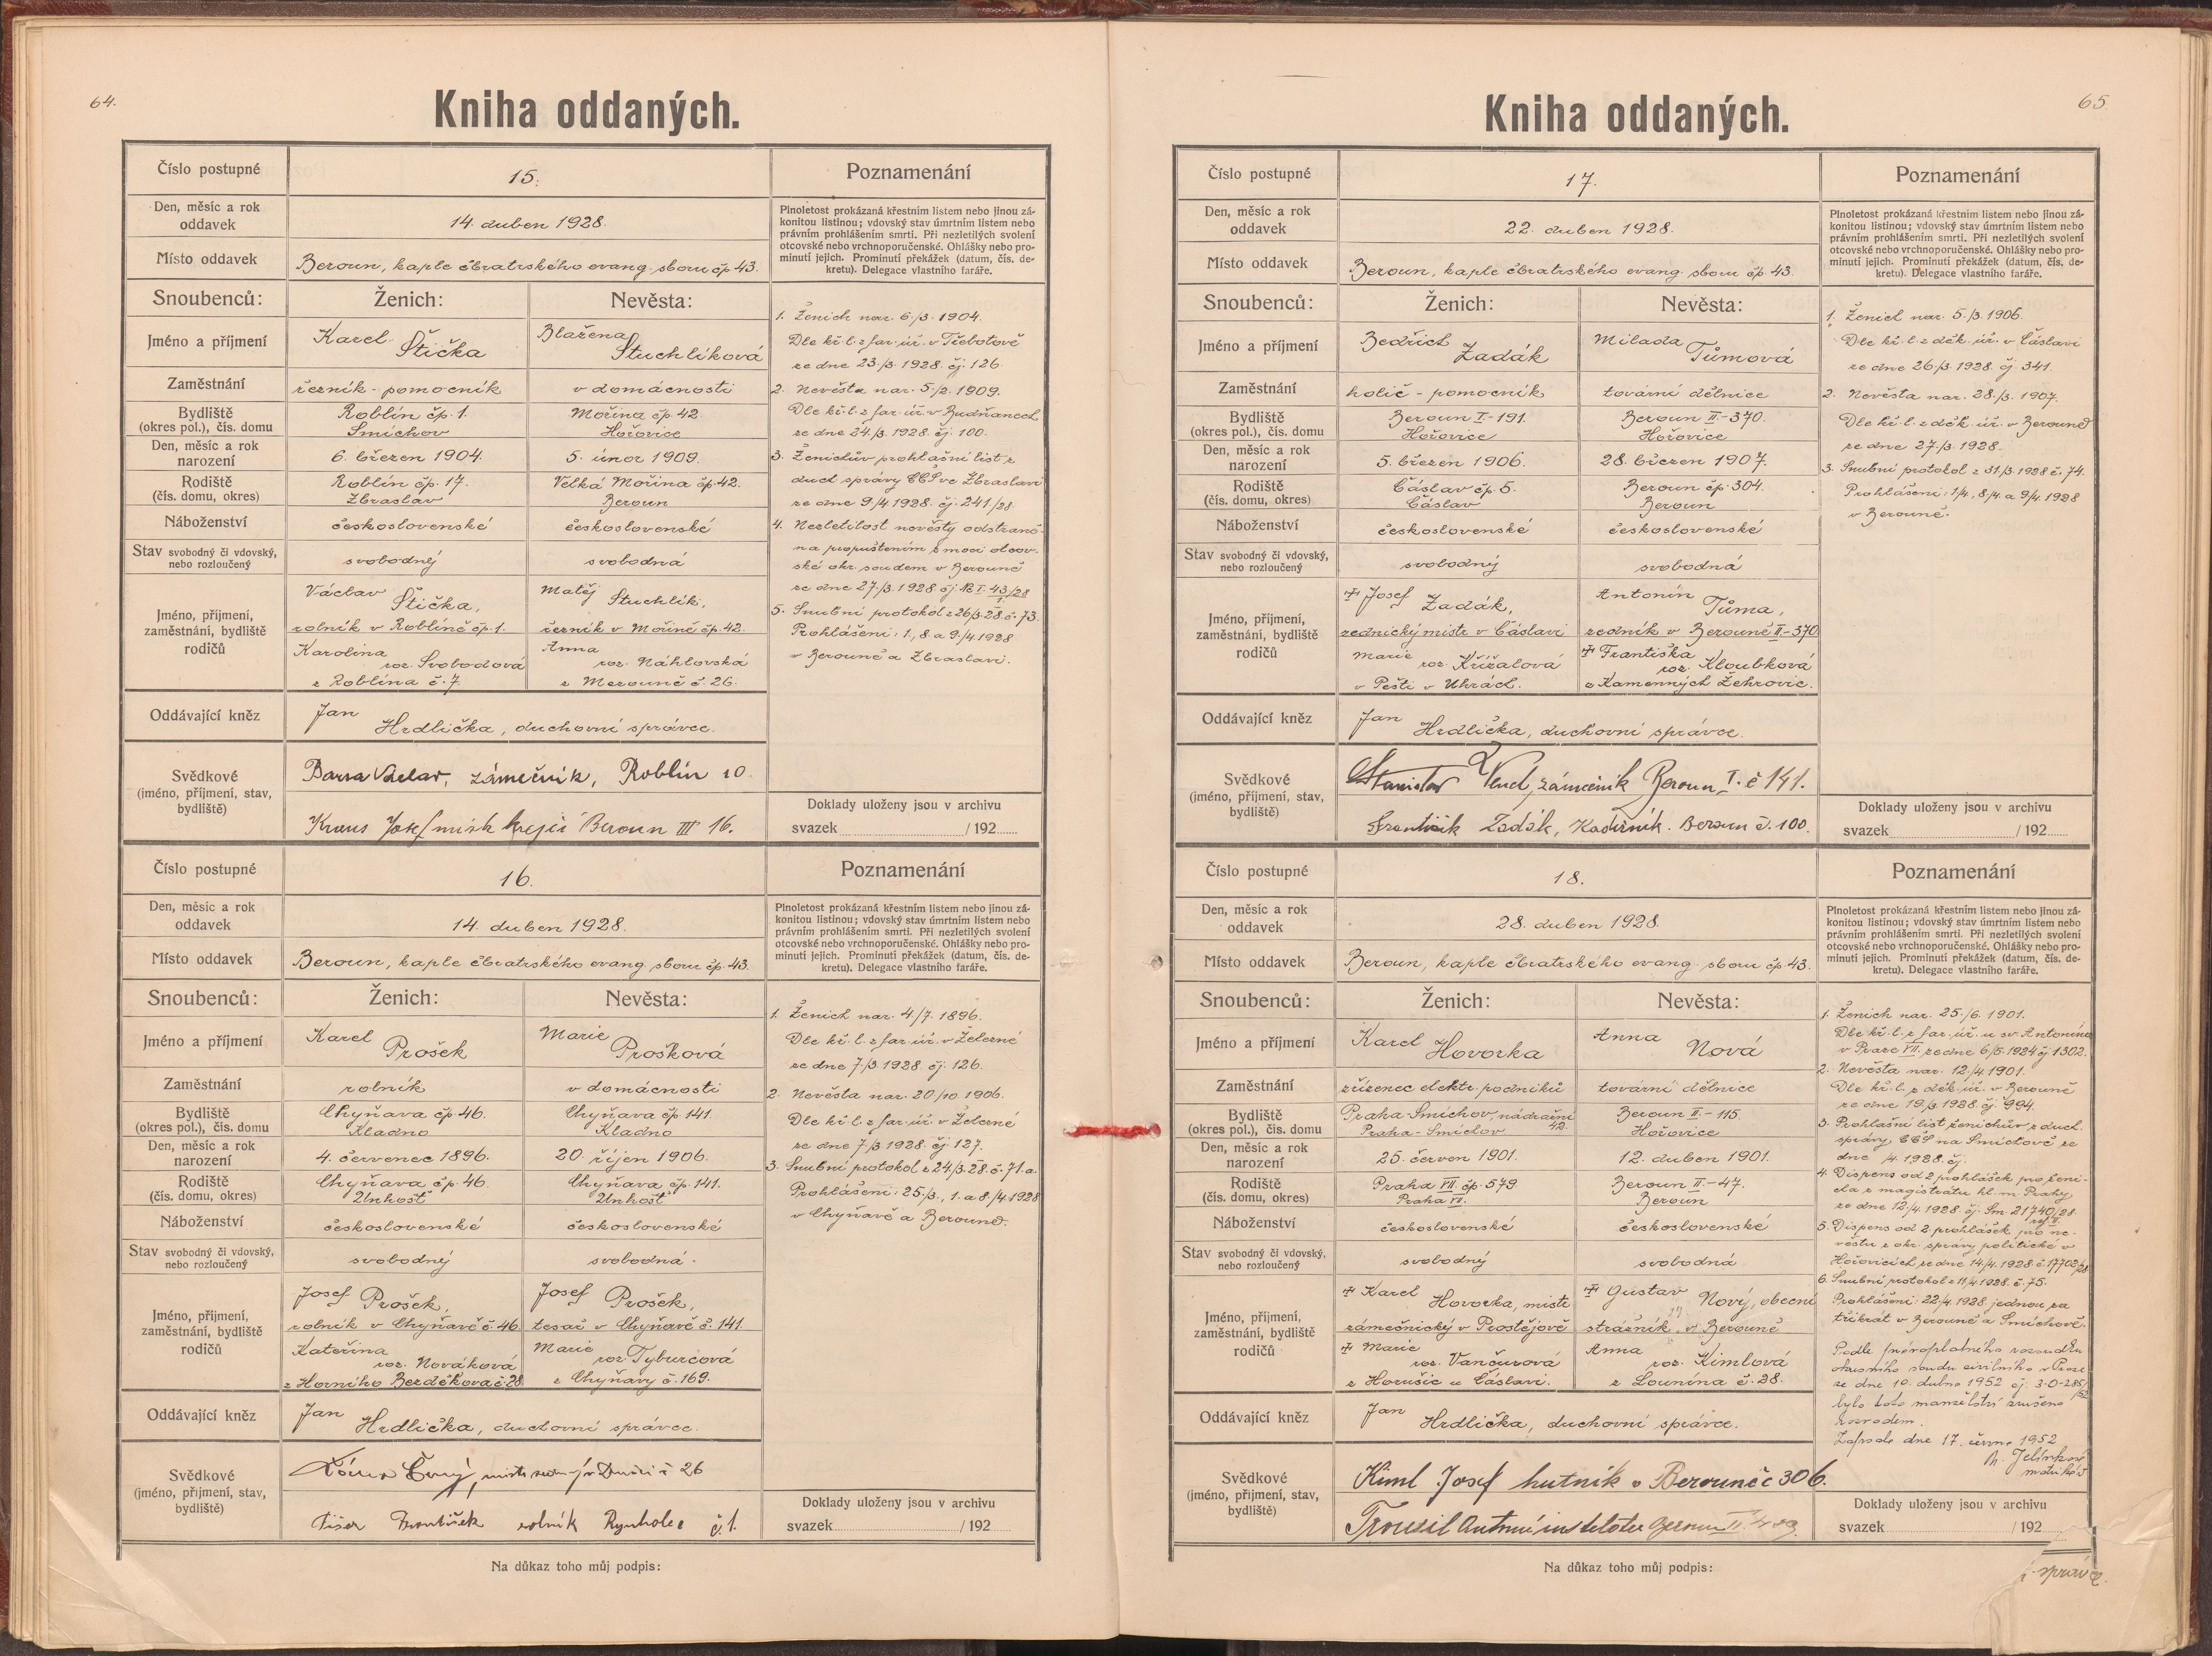 64.
Kniha oddaných.
Číslo postupné
15.
Poznamenání
Den, měsíc a rok
oddavek
14. duben 1928.
Plnoletost prokázaná křestním listem nebo jinou zá-
konitou listinou; vdovský stav úmrtním listem nebo
právním prohlášením smrti. Při nezletilých svolení
otcovské nebo vrchnoporučenské. Ohlášky nebo pro-
minutí jejich. Prominutí překážek (datum, čís. de-
kretu). Delegace vlastního faráře.
Místo oddavek
Beroun, kaple čbratrského evang. sboru čp. 43.
Snoubenců:
Ženich:
Nevěsta:
Jméno a příjmení
Karel Štička
Blažena Stuchlíková
Zaměstnání
řezník - pomocník
v domácnosti
Bydliště
(okres pol.), čís. domu
Roblín čp. 1.
Smíchov
Mořina čp. 42.
Hořovice
Den, měsíc a rok
narození
6. březen 1904.
5. únor 1909.
Rodiště
(čís. domu, okres)
Roblín čp. 17.
Zbraslav
Velká Mořina čp. 42.
Beroun
Náboženství
československé
československé
Stav svobodný či vdovský,
nebo rozloučený
svobodný
svobodná
Jméno, příjmení,
zaměstnání, bydliště
rodičů
Václav Štička,
rolník v Roblíně čp. 1.
Karolina
roz. Svobodová
z Roblína č. 7.
Matěj Stuchlík,
řezník v Mořině čp. 42.
Anna
roz. Náhlovská
z Merouně č. 26.
Oddávající kněz
Jan
Hrdlička, duchovní správce.
Svědkové
(jméno, příjmení, stav,
bydliště)
Václav, zámečník, Roblín 10.
Kraus Josef mistr krejčí Beroun III 16.
1. Ženich nar. 6./3. 1904.
Dle kř. l. z far. úř. v Třebotově
ze dne 23./3. 1928. čj. 126.
2. Nevěsta nar. 5./2. 1909.
Dle kř. l. z far. úř. v Budňanech
ze dne 24./3. 1928. čj. 100.
3. Ženichův prohlašní list z
duch. správy CČS ve Zbraslavi
ze dne 9/4. 1928. čj. 241/28.
4. Nezletilost nevěsty odstraně-
na propuštěním z moci otcov-
ské okr. soudem v Berouně
ze dne 27./3. 1928 čj. Nc I. 43/28
5. Snubní protokol z 26/3. 28. č. 73.
Prohlášení: 1., 8 a 9./4. 1928
v Berouně a Zbraslavi.
Doklady uloženy jsou v archivu
svazek /192
Číslo postupné
16.
Poznamenání
Den, měsíc a rok
oddavek
14. duben 1928.
Plnoletost prokázaná křestním listem nebo jinou zá-
konitou listinou; vdovský stav úmrtním listem nebo
právním prohlášením smrti. Při nezletilých svolení
otcovské nebo vrchnoporučenské. Ohlášky nebo pro-
minutí jejich. Prominutí překážek (datum, čís. de-
kretu). Delegace vlastního faráře.
Místo oddavek
Beroun, kaple čbratrského evang. sboru čp. 43.
Snoubenců:
Ženich:
Nevěsta:
Jméno a příjmení
Karel Prošek
Marie Prošková
Zaměstnání
rolník
v domácnosti
Bydliště
(okres pol.), čís. domu
Chyňava čp. 46.
Kladno
Chyňava čp. 141.
Kladno
Den, měsíc a rok
narození
4. červenec 1896.
20. říjen 1906.
Rodiště
(čís. domu, okres)
Chyňava čp. 46.
Unhošť
Chyňava čp. 141.
Unhošť
Náboženství
československé
československé
Stav svobodný či vdovský,
nebo rozloučený
svobodný
svobodná.
Jméno, příjmení,
zaměstnání, bydliště
rodičů
Josef Prošek,
rolník v Chyňavě č. 46.
Kateřina
roz. Nováková
z Horního Bezděkova č. 28.
Josef Prošek,
tesař v Chyňavě č. 141.
Marie
roz. Tyburcová
z Chyňavy č. 169.
Oddávající kněz
Jan
Hrdlička, duchovní správce.
Svědkové
(jméno, příjmení, stav,
bydliště)
Černý, č 26
Fišer František rolník Rynholec č. 1.
1. Ženich nar. 4./7. 1896.
Dle kř. l. z far. úř. v Železné
ze dne 7./3. 1928. čj. 126.
2. Nevěsta nar. 20/10. 1906.
Dle kř. l. z far. úř. v Železné
ze dne 7./3. 1928. čj. 127.
3. Snubní protokol z 24/3. 28. č. 71. a.
Prohlášení: 25./3., 1. a 8./4. 1928
v Chyňavě a Berouně.
Doklady uloženy jsou v archivu
svazek /192
Na důkaz toho můj podpis:
65.
Kniha oddaných.
Číslo postupné
17.
Poznamenání
Den, měsíc a rok
oddavek
22. duben 1928.
Plnoletost prokázaná křestním listem nebo jinou zá-
konitou listinou; vdovský stav úmrtním listem nebo
právním prohlášením smrti. Při nezletilých svolení
otcovské nebo vrchnoporučenské. Ohlášky nebo pro-
minutí jejich. Prominutí překážek (datum, čís. de-
kretu). Delegace vlastního faráře.
Místo oddavek
Beroun, kaple čbratrského evang. sboru čp. 43.
Snoubenců:
Ženich:
Nevěsta:
Jméno a příjmení
Bedřich Zadák
Milada Tůmová
Zaměstnání
holič - pomocník
tovární dělnice
Bydliště
(okres pol.), čís. domu
Beroun I-191.
Hořovice
Beroun II-370.
Hořovice
Den, měsíc a rok
narození
5. březen 1906.
28. březen 1907.
Rodiště
(čís. domu, okres)
Čáslav čp. 5.
Čáslav
Beroun čp. 304.
Beroun
Náboženství
československé
československé
Stav svobodný či vdovský,
nebo rozloučený
svobodný
svobodná
Jméno, příjmení,
zaměstnání, bydliště
rodičů
✝ Josef Zadák,
zednický mistr v Čáslavi
Marie
roz. Křížalová
v Pešti v Uhrách.
Antonín Tůma,
zedník v Berouně II-370.
✝ Františka
roz. Kloubková
z Kamenných Žehrovic.
Oddávající kněz
Jan
Hrdlička, duchovní správce.
Svědkové
(jméno, příjmení, stav,
bydliště)
Stanislav zámečník Beroun I. č 141.
František Zadák, Kadeřník. Beroun č. 100.
1. Ženich nar. 5./3. 1906.
Dle kř. l. z děk. úř. v Čáslavi
ze dne 26./3. 1928. čj. 341.
2. Nevěsta nar. 28./3. 1907.
Dle kř. l. z děk. úř. v Berouně
ze dne 27./3. 1928.
3. Snubní protokol z 31/3. 1928 č. 74.
Prohlášení: 1/4., 8./4. a 9/4. 1928
v Berouně.
Doklady uloženy jsou v archivu
svazek /192
Číslo postupné
18.
Poznamenání
Den, měsíc a rok
oddavek
28. duben 1928.
Plnoletost prokázaná křestním listem nebo jinou zá-
konitou listinou; vdovský stav úmrtním listem nebo
právním prohlášením smrti. Při nezletilých svolení
otcovské nebo vrchnoporučenské. Ohlášky nebo pro-
minutí jejich. Prominutí překážek (datum, čís. de-
kretu). Delegace vlastního faráře.
Místo oddavek
Beroun, kaple čbratrského evang. sboru čp. 43.
Snoubenců:
Ženich:
Nevěsta:
Jméno a příjmení
Karel Hovorka
Anna Nová
Zaměstnání
zřízenec elektr. podniků
tovární dělnice
Bydliště
(okres pol.), čís. domu
Praha-Smíchov, nádražní 42.
Praha-Smíchov
Beroun II-115
Hořovice
Den, měsíc a rok
narození
25. červen 1901.
12. duben 1901.
Rodiště
(čís. domu, okres)
Praha VII čp. 579
Praha VII.
Beroun II-47.
Beroun
Náboženství
československé
československé
Stav svobodný či vdovský,
nebo rozloučený
svobodný
svobodná
Jméno, příjmení,
zaměstnání, bydliště
rodičů
✝ Karel
Hovorka, mistr
zámečnický v Prostějově
✝ Marie
roz. Vančurová
z Horušic u Čáslavi.
✝ Gustav
Nový, obecní
strážník v Berouně
Anna
roz. Kimlová
z Lounína č. 28.
Oddávající kněz
Jan
Hrdlička, duchovní správce.
Svědkové
(jméno, příjmení, stav,
bydliště)
Kiml Josef hutník v Berouně č 306.
Trousil Antonín Beroun II
1. Ženich nar. 25./6. 1901.
Dle kř. l. z far. úř. u sv. Antonína
v Praze VII. ze dne 6/5. 1924 čj. 1302.
2. Nevěsta nar. 12./4. 1901.
Dle kř. l. z děk. úř. v Berouně
ze dne 19./3. 1928. čj. 994.
3. Prohlašní list ženichův z duch.
správy CČS na Smíchově ze
dne /4. 1928. čj.
4. Dispens od 2 prohlášek pro ženi-
cha z magistrátu hl. m. Prahy
ze dne 12./4. 1928. čj. Sm. 21740/28.
ref. II.
5. Dispens od 2. prohlášek pro ne-
věstu z okr. správy politické v
Hořovicích ze dne 14/4. 1928. č. 17702/28
6. Snubní protokol z 11/4 1928. č. 75.
Prohlášení: 22/4. 1928 jednou za
třikrát v Berouně a Smíchově.
Podle právoplatného rozsudku
okresního soudu civilního v Praze
ze dne 10. dubna 1952 čj. 3-0-285/52
bylo toto manželství zrušeno
rozvodem.
Zapsáno dne 17. června 1952
Jelínková
matrikář
Doklady uloženy jsou v archivu
svazek /192
Na důkaz toho můj podpis: